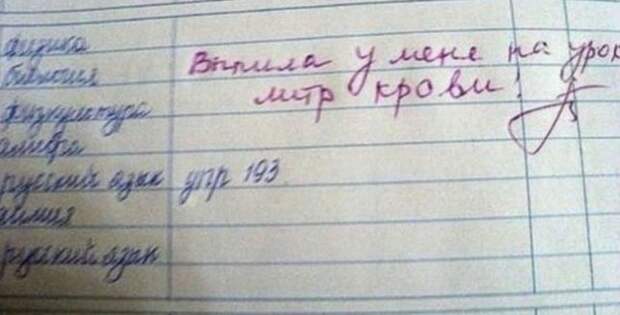 физика
биология Выпила у мене на урок
физкультура литр крови!
алгебра
русский язык упр 193
химия
русский язык